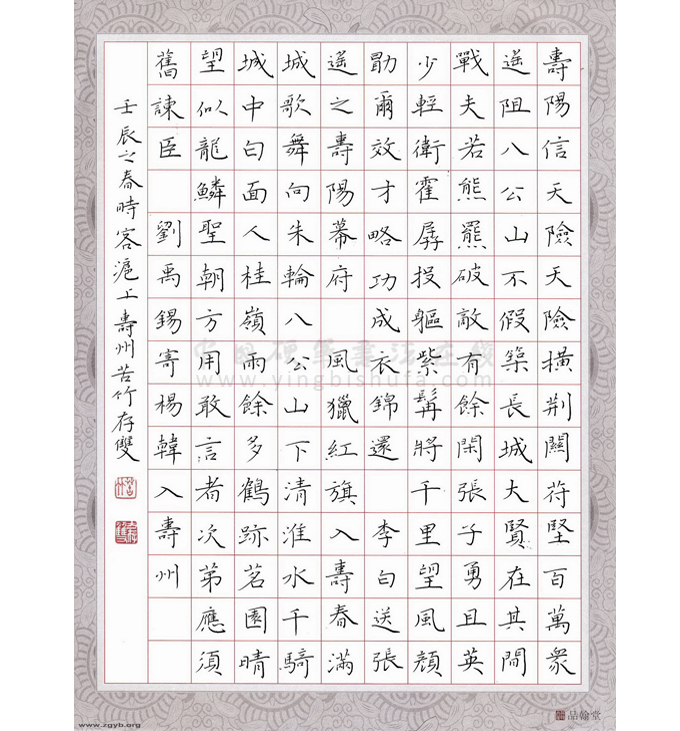 壽陽信天險天險横荆關苻堅百萬衆
遥阻八公山不假築長城大賢在其間
戰夫若熊羆破敵有餘閑張子勇且英
少輕衛霍孱投軀紫髯將千里望風顔
勖爾效才略功成衣錦還 李白送張
遥之壽陽幕府 風獵紅旗入壽春滿
城歌舞向朱輪八公山下清淮水千騎
城中白面人桂嶺雨餘多鶴跡茗園晴
望似龍鱗聖朝方用敢言者次第應須
舊諫臣 劉禹錫寄楊韓入壽州
壬辰之春時客滬上壽州苦竹存雙
苦竹
中国硬笔书法在线
www.yingbishufa.com
www.zgyb.org
品翰堂